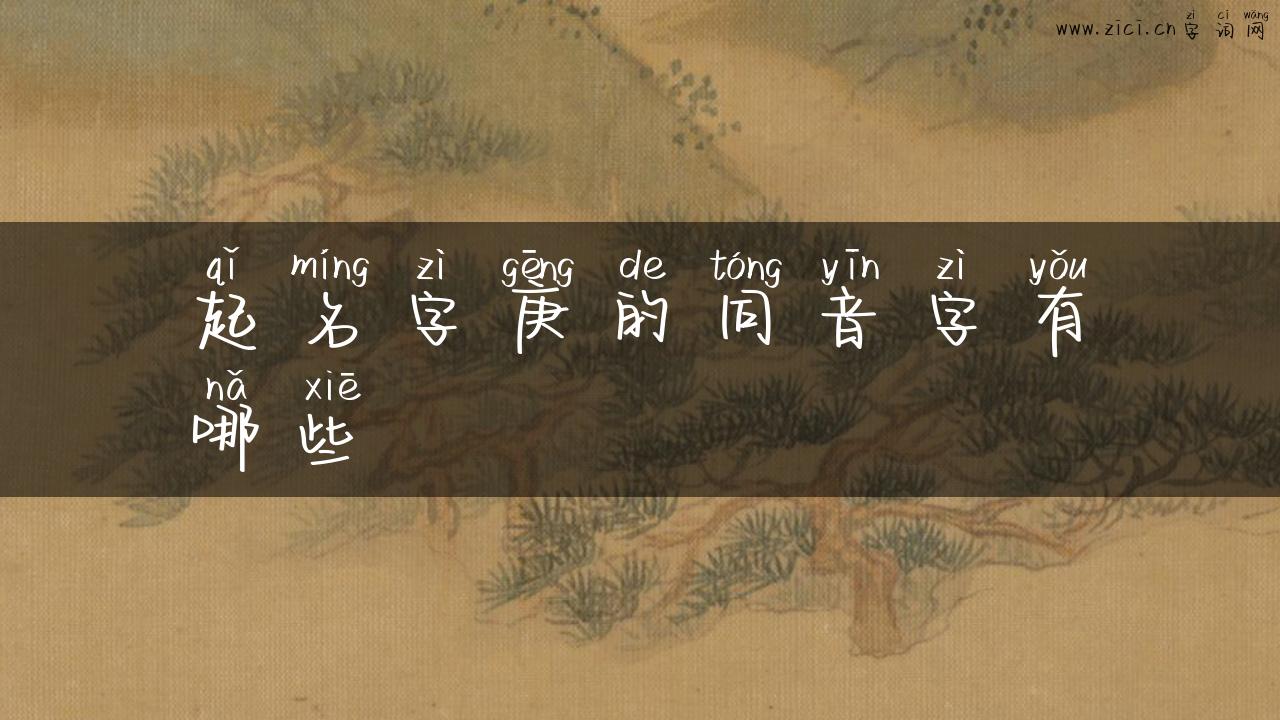 zì cí wǎng
www.zici.cn 字 词 网
qǐ míng zì gēng de tóng yīn zì yǒu
起 名 字 庚 的 同 音 字 有
nǎ xiē
哪 些